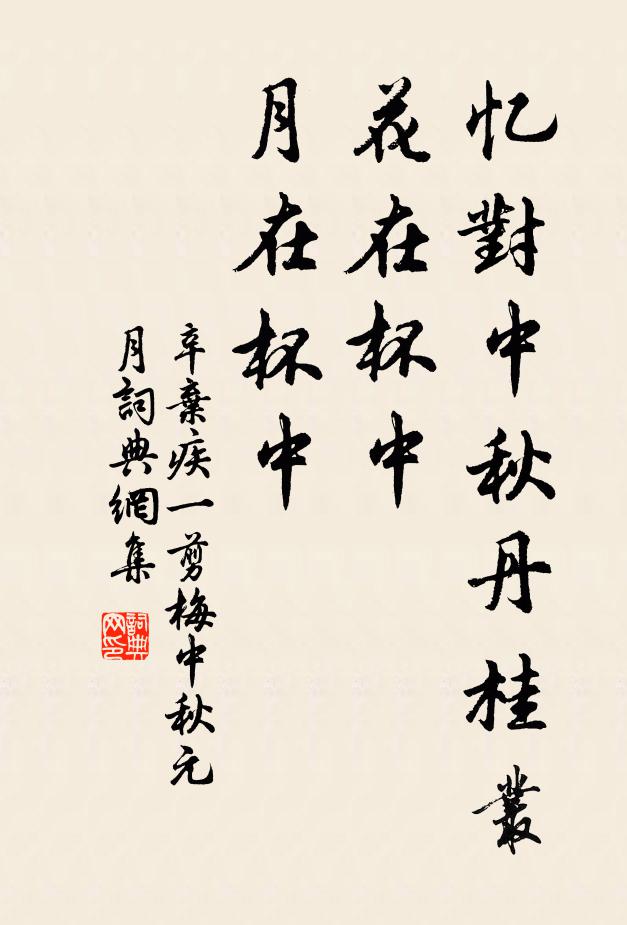 忆對中秋丹桂叢
花在杯中
月在杯中
辛棄疾一剪梅中秋元
月詞典網集
詞典网印